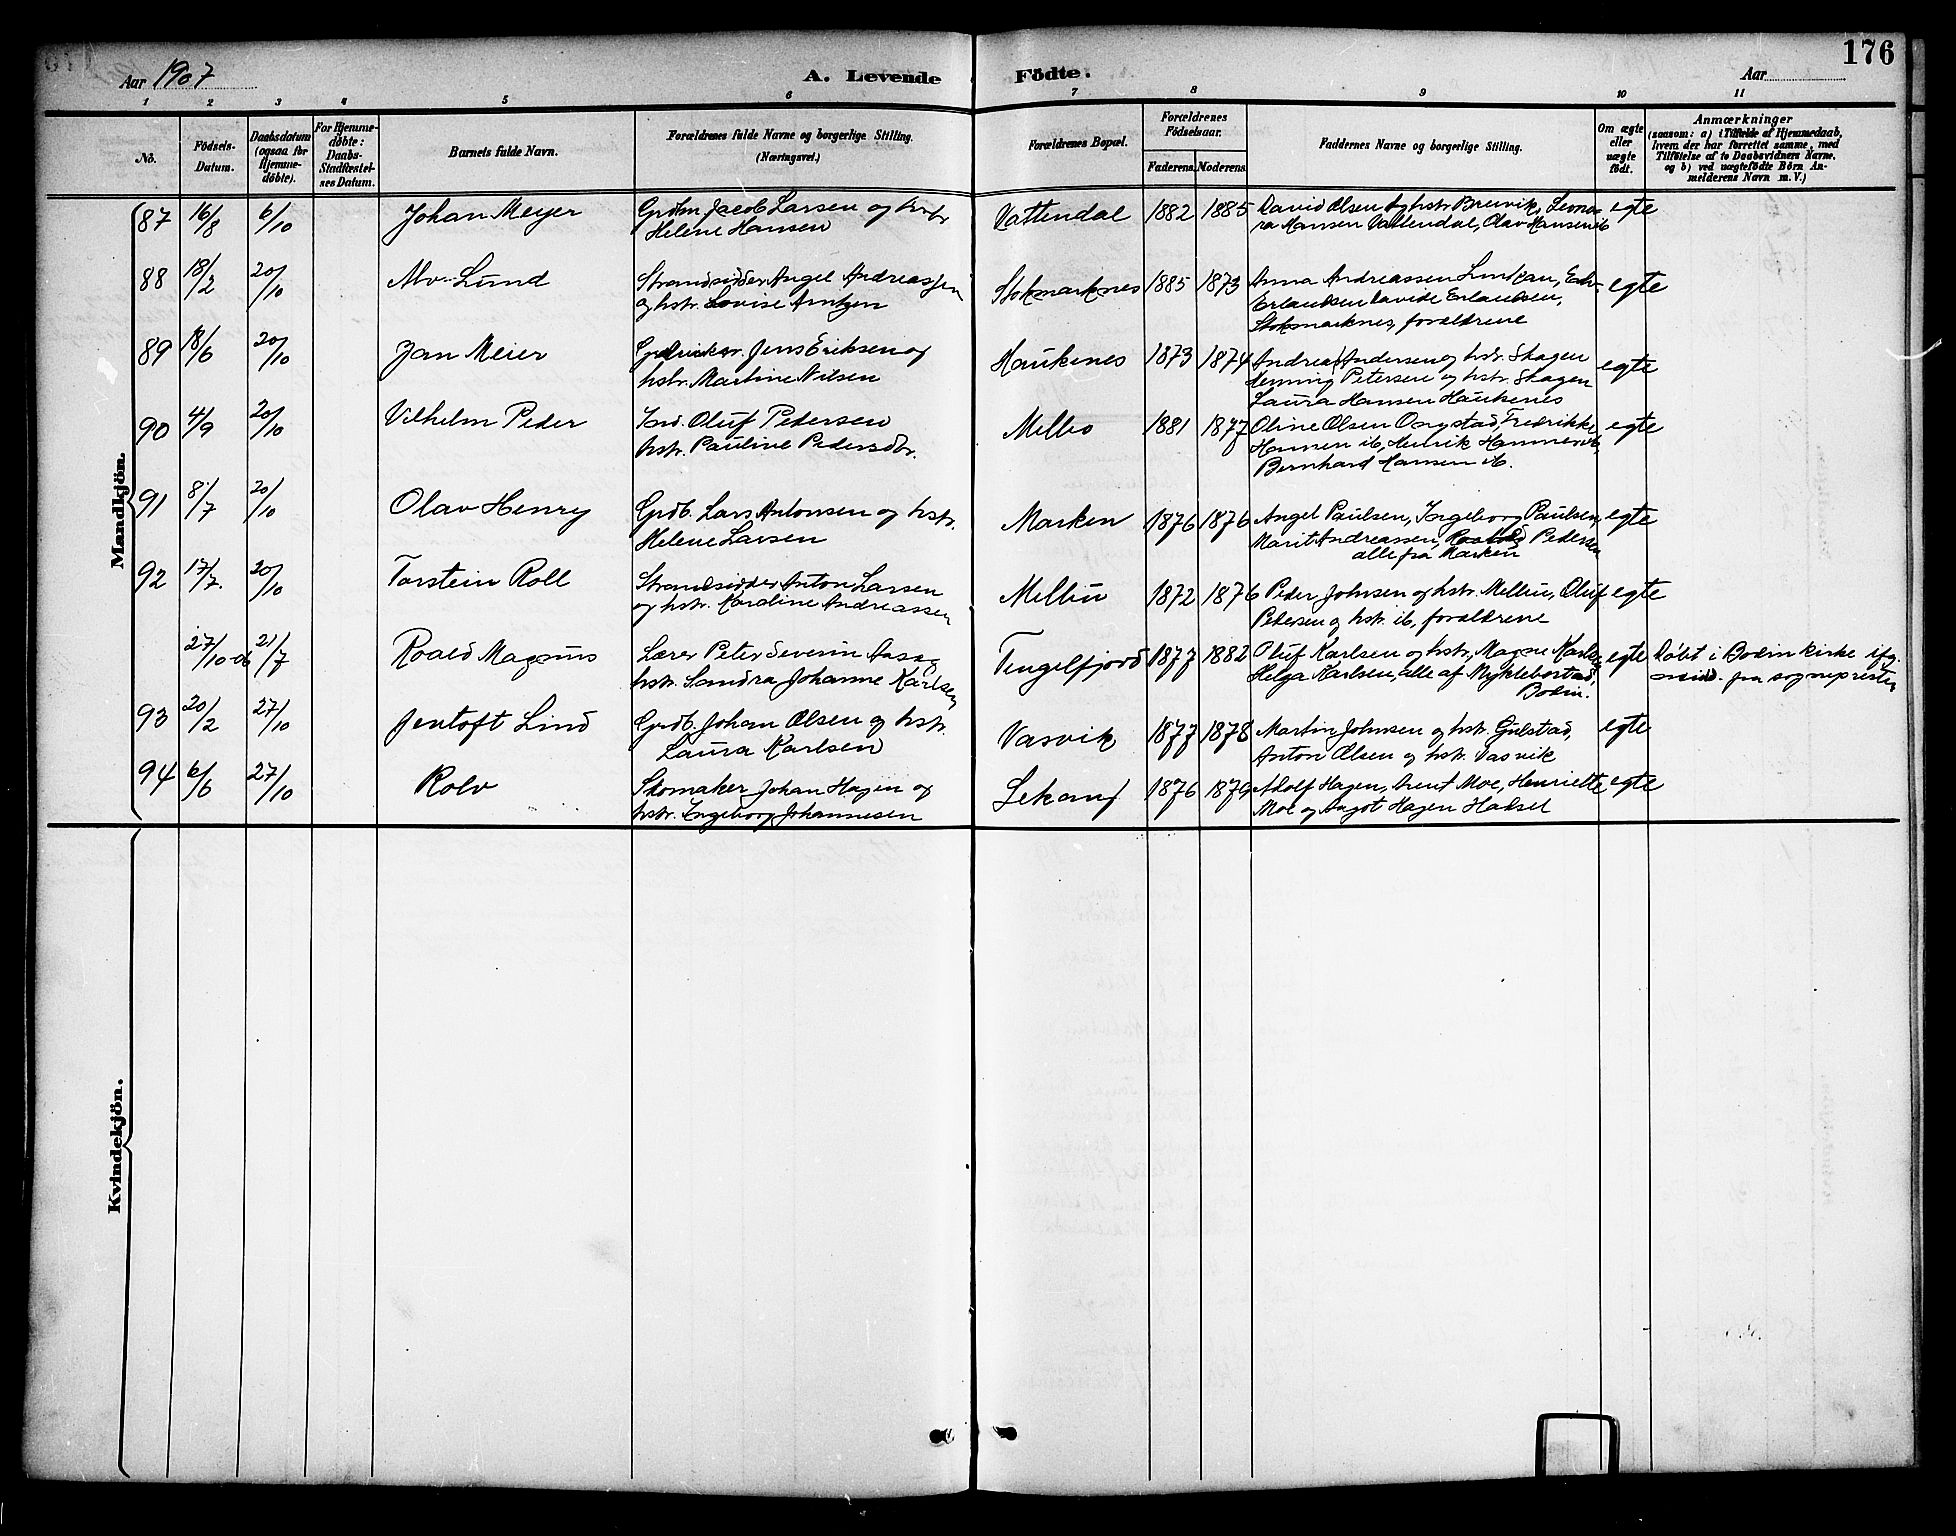 176
Aar 1907
A. Levende Födte.
Aar
1 2 3 4 5 6 7 8 9 10 11
No.
Födsels-
Datum.
Daabsdatum
(ogsaa for
Hjemme-
döbte).
For Hjemme-
döbte:
Daabs-
Stadfæstel-
ses Datum.
Barnets fulde Navn.
Forældrenes fulde Navne og borgerlige Stilling.
(Næringsvei.)
Forældrenes Bopæl.
Forældrenes
Födselsaar.
Faderens Moderens
Faddernes Navne og borgerlige Stilling.
Om ægte
eller
uægte
födt.
Anmærkninger
(saasom: a) i Tilfælde af Hjemmedaab,
hvem der har forrettet samme, med
Tilföielse af to Daabsvidners Navne,
og b) ved uægtefödte Börn An-
melderens Navn m. V.)
Mandkjön.
87 16/8 6/10 Johan Meyer Jacob Larsen og Vattendal 1882 1885 David Olsen og hstr Breivik, Leono- egte
Helene Hansen
ra Hansen Vattendal, Olav Hansen ib
88 18/2 20/10 Lund Strandsidder Angel Andreassen Stokmarknes 1885 1873 Anna Andreassen egte
og hstr. Lovise Arntzen
Erlandsen Erlandsen,
Stokmarknes, forældrene
89 18/6 20/10 Jan Meier Jens Eriksen og Haukenes 1873 1874 Andreas Andersen og hstr. Skagen egte
hstr. Martine Nilsen
Henning Petersen og hstr. Skagen
Laura Hansen Haukenes
90 4/9 20/10 Vilhelm Peder Oluf Pedersen Melbo 1881 1877 Oline Olsen Ongstad, Fredrikke egte
hstr. Pauline Pedersdtr.
ib, Henrik
Bernhard Hansen ib.
91 8/7 20/10 Olav Henry Grdb. Lars Antonsen og hstr. Marken 1876 1876 Angel Paulsen, Ingeborg Paulsen, egte
Helene Larsen
Marit Andreassen, Pedersen
alle fra Marken
92 17/7. 20/10 Torstein Roll Strandsidder Anton Larsen Melbu 1872 1876 Peder Johnsen og hstr. Melbu, Oluf egte
og hstr. Karoline Andreassen
Petersen og hstr. ib, forældrene
27/10-06 21/7 Roald Magnus Lærer Peter Severin Aasa og Tengelfjord 1877 1882 Oluf Karlsen og hstr, Magne Karlsen egte Döbt i Bodin kirke ifg.
hstr. Sandra Johanne Karlsen
Helga Karlsen, alle af Myklebostad,
Bodin.
fra sognepresten
93 20/2 27/10 Jentoft Lind Grdb. Johan Olsen og hstr. Vasvik 1877 1878 Martin Johnsen og hstr. Gulstad, egte
Laura Karlsen
Anton Olsen og hstr. Vasvik
94 6/6 27/10 Rolv Skomaker Johan Hagen og Lekang 1876 1879 Adolf Hagen, Arent Moe, Henriette egte
hstr. Ingeborg Johannesen
Moe og Angot Hagen Hadsel
Kvindekjön.